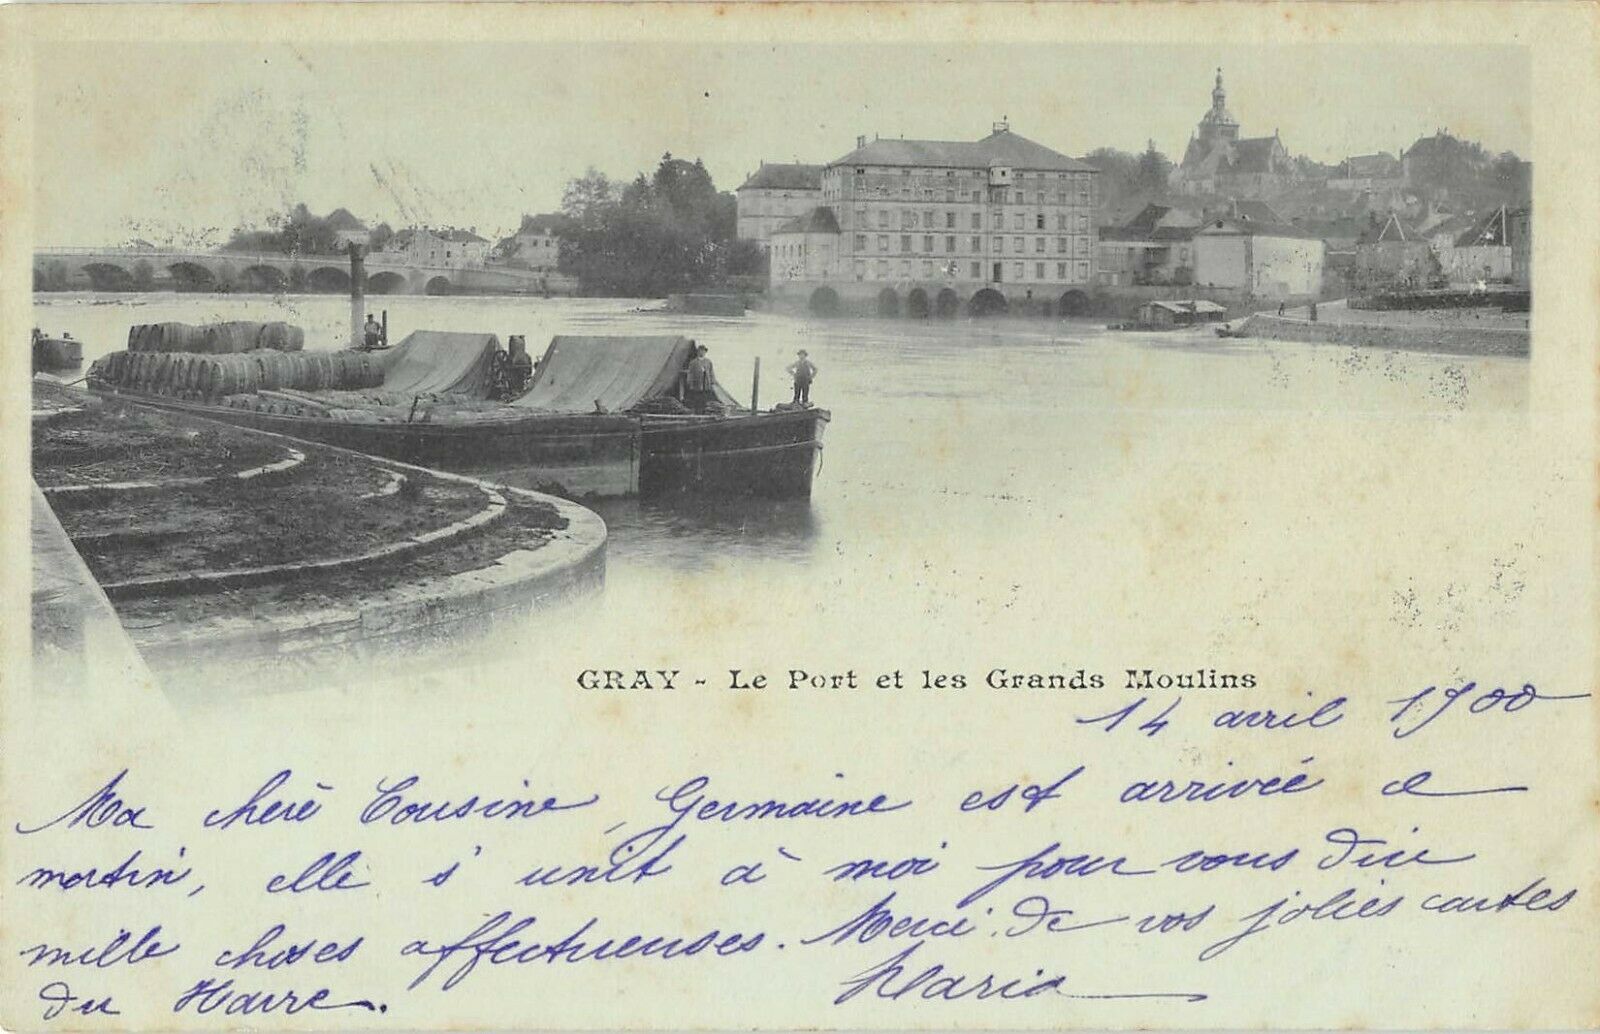 GRAY - Le Port et les Grands Moulins
14 avril 1900
Ma chère Cousine, Germaine est arrivée ce
matin, elle s'unit à moi pour vous dire
mille choses affectueuses. Merci de vos jolies cartes
du Havre.
Maria